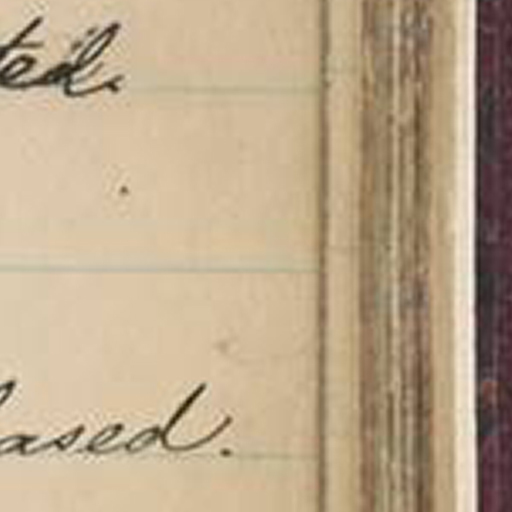 ted.
ased.